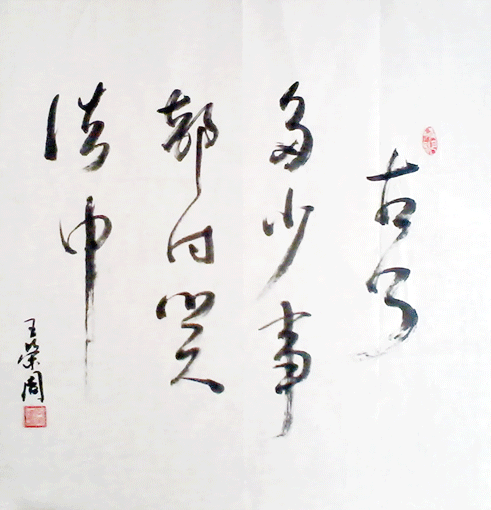 古今
多少事
都付笑
谈中
王荣周